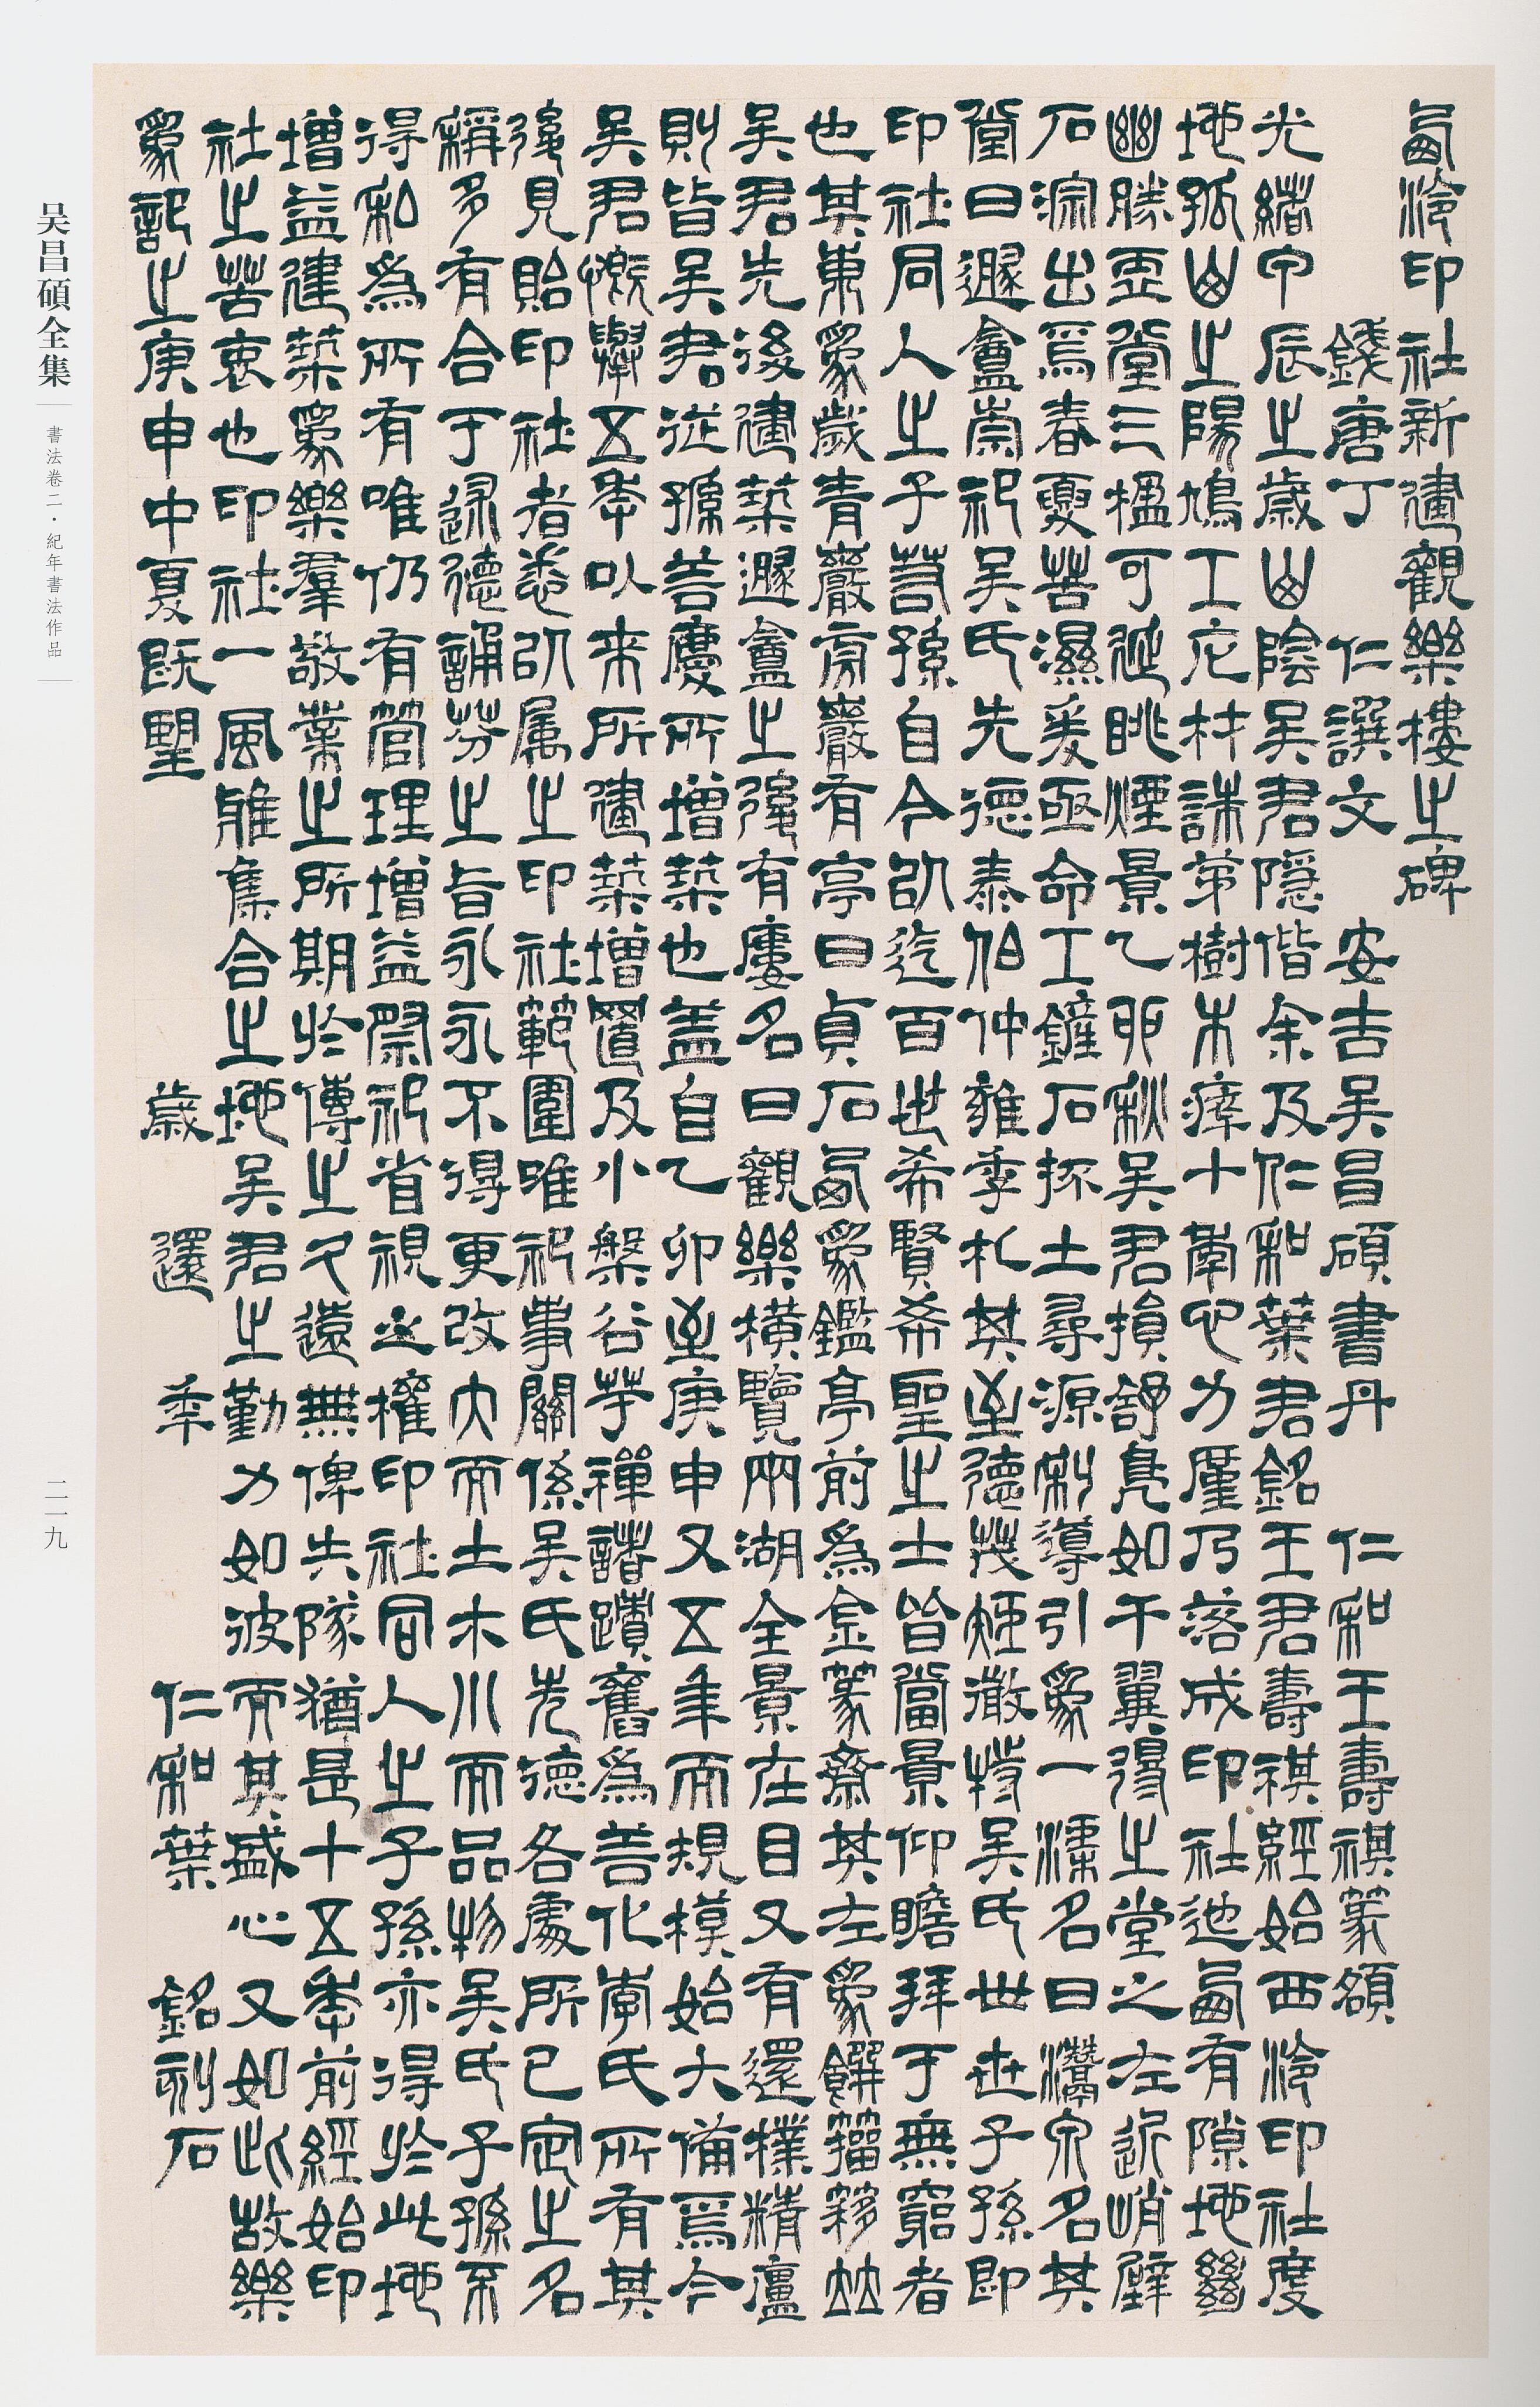 西泠印社新建觀樂樓之碑
錢唐丁　仁譔文　安吉吳昌碩書丹　仁和王壽祺篆額
光緒甲辰之歲山陰吳君隱偕余及仁和葉君銘王君壽祺經始西泠印社度
地孤山之陽鳩工庀材誅茅樹木瘁十年心力廑乃落成印社迤西有隙地幽
幽勝亞堂三楹可延眺煙景乙卯秋吳君損舒鳧如干翼得之堂之左近峭壁
石淙出焉春夏苦濕爰亟命工鑱石抔土尋源利導引為一潭名曰潛泉名其
堂曰遯盦崇祀吳氏先德泰伯仲雍季札其至德茂矩徽特吳氏世世子孫即
印社同人之子若孫自今以迄百世希賢希聖之士皆當景仰瞻拜于無窮者
也其東為歲青巖旁巖有亭曰貞石西為鑑亭前為金篆齋其左為饌籀簃竝
吳君先後建築遯盦之後有廔名曰觀樂橫覽兩湖全景在目又有還樸精廬
則皆吳君從孫善慶所增築也蓋自乙卯至庚申又五年而規模始大備焉今
吳君慨舉五年以來所建築增置及小槃谷芋禪諸蹟舊為善化李氏所有其
後見貽印社者悉以屬之印社範圍唯祀事關係吳氏先德各處所已定之名
稱多有合于述德誦芬之旨永永不得更改大而土木川而品物吳氏子孫不
得私為所有唯仍有管理增益祭祀省視之權印社同人之子孫亦得於此地
增益建築為樂羣敬業之所期於傳之久遠無俾失隊猶是十五年前經始印
社之苦衷也印社一風雅集合之地吳君之勤力如彼而其盛心又如此故樂
為記之庚申中夏既望　　歲　還　年　　仁和葉　銘刻石
吴昌碩全集
書法卷二・紀年書法作品
二一九